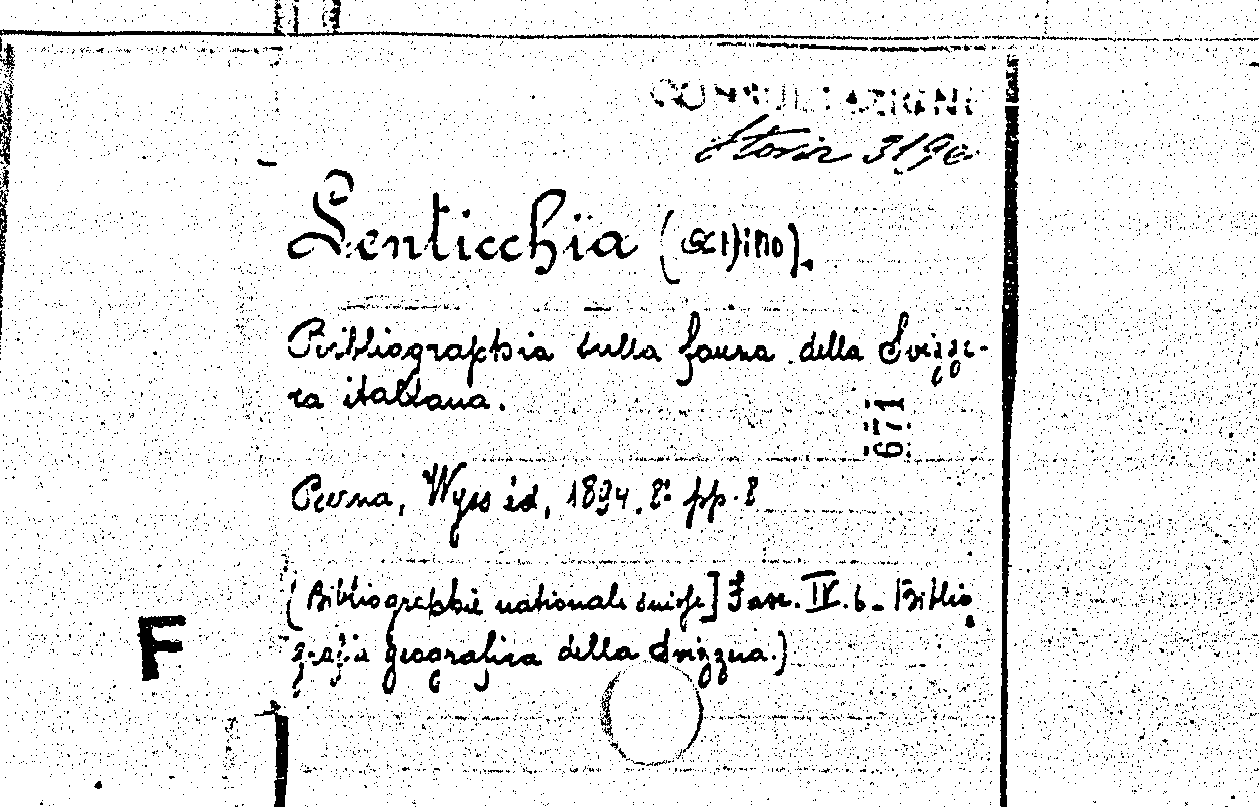 CONSULTAZIONE
Storia 319a
Lenticchia (Attilio).
Bibliographia sulla fauna della Svizze-
ra italiana.
671
Berna, Wyss éd, 1894. 8° pp. 8
(Bibliographie nationale suisse] Fasc. IV. 6 - Biblio
grafia geografica della Svizzera.)
F